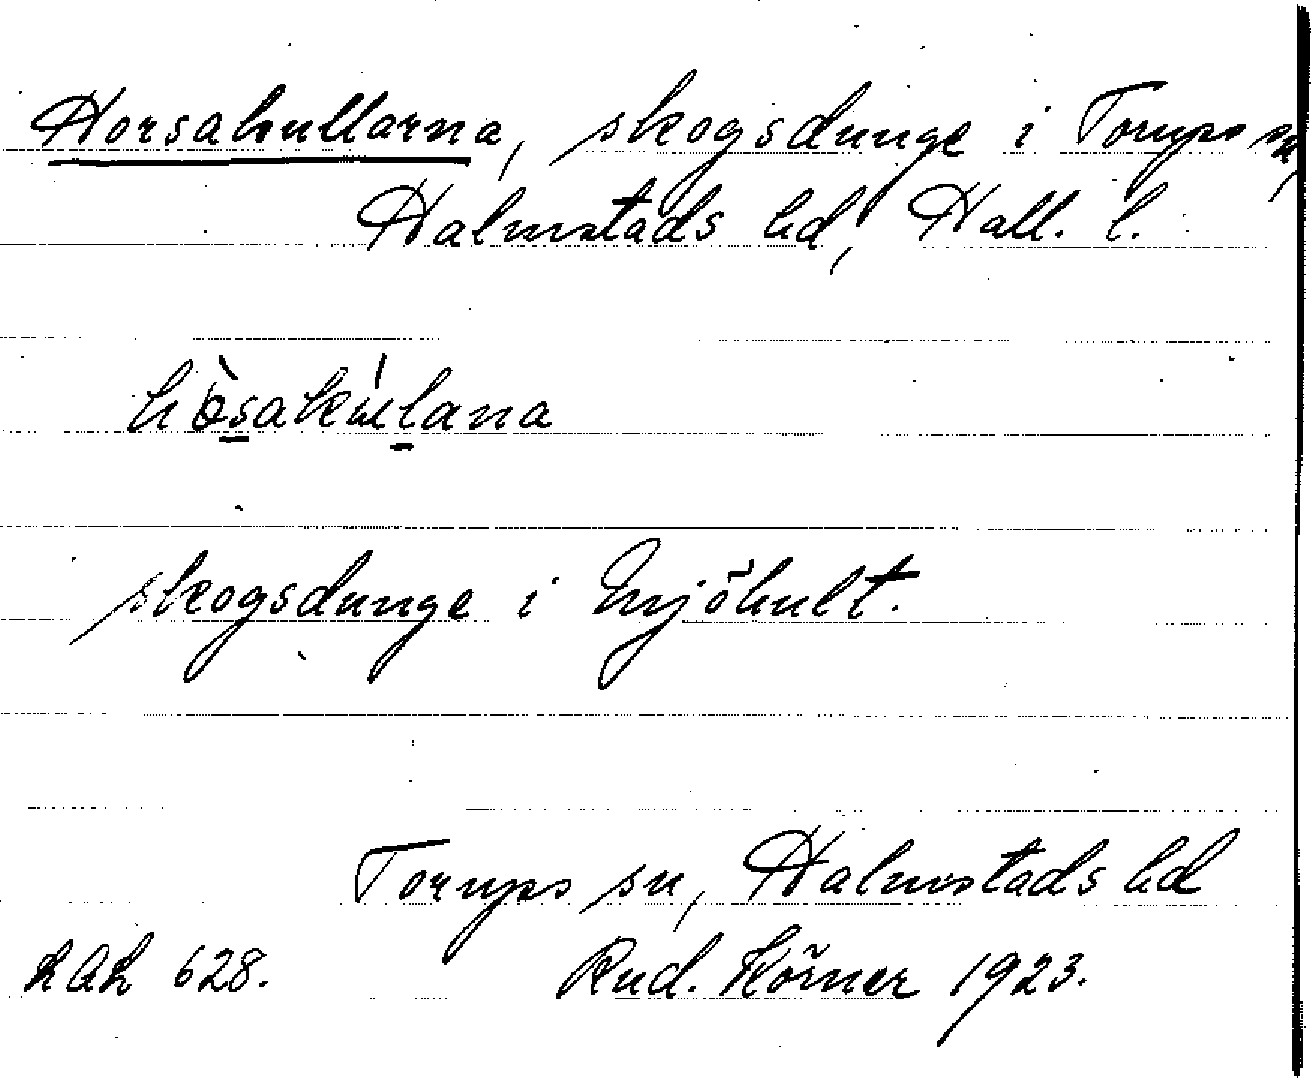 Horsakullarna, skogsdunge i Torups sn,
Halmstads hd, Hall. l.
hòsakúlana
skogsdunge i Mjöhult.
Torups sn, Halmstads hd
628. Rud. Körner 1923.